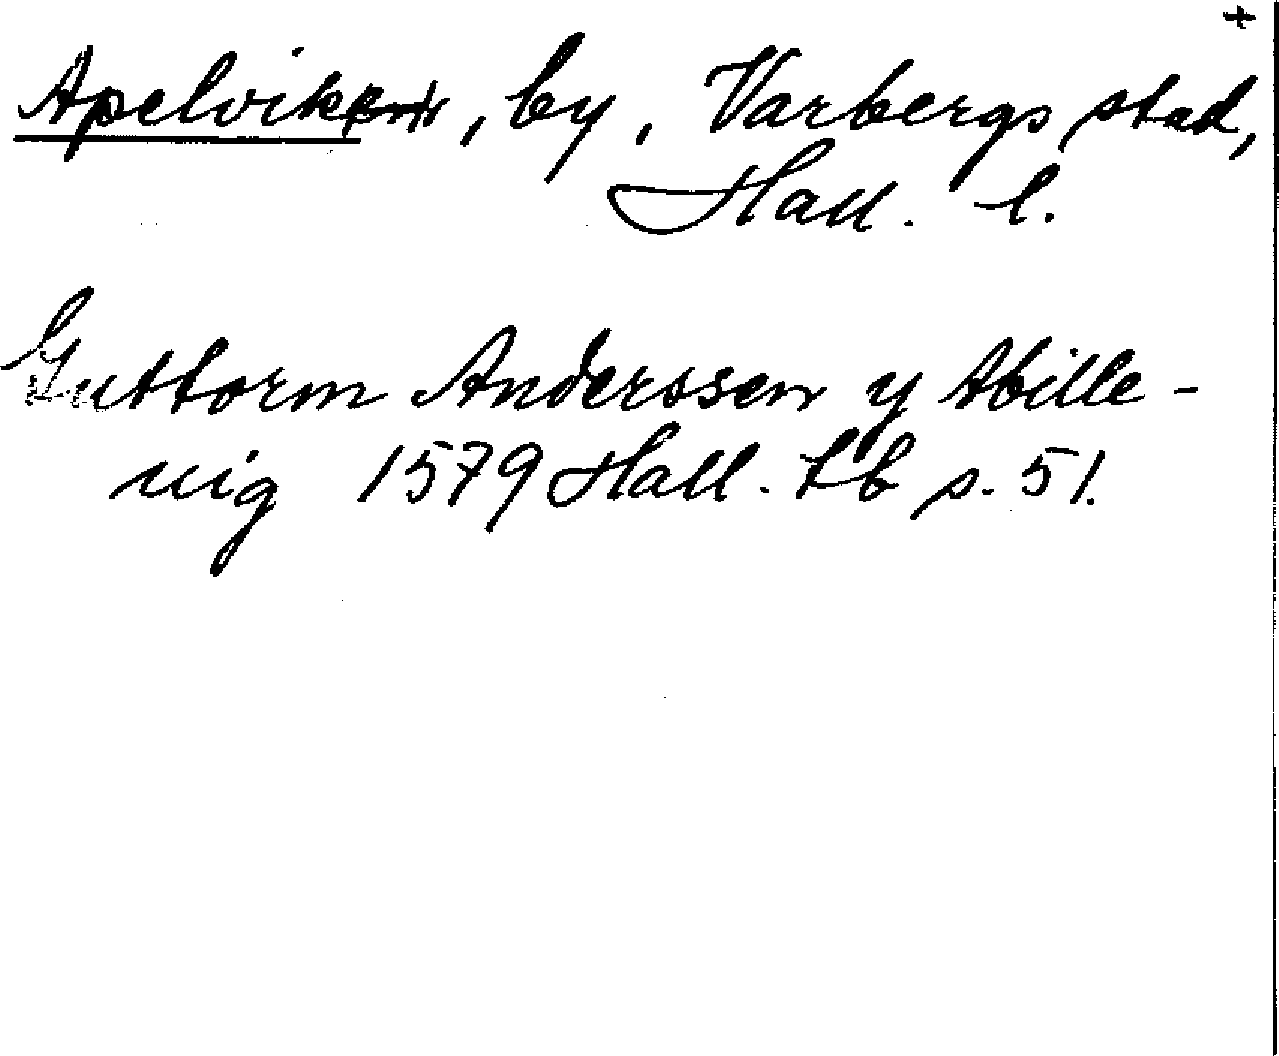 +
Apelvik, by, Varbergs stad,
Hall. l.
Guttorm Anderssen y Abille-
uig 1579 Hall. Lb s. 51.